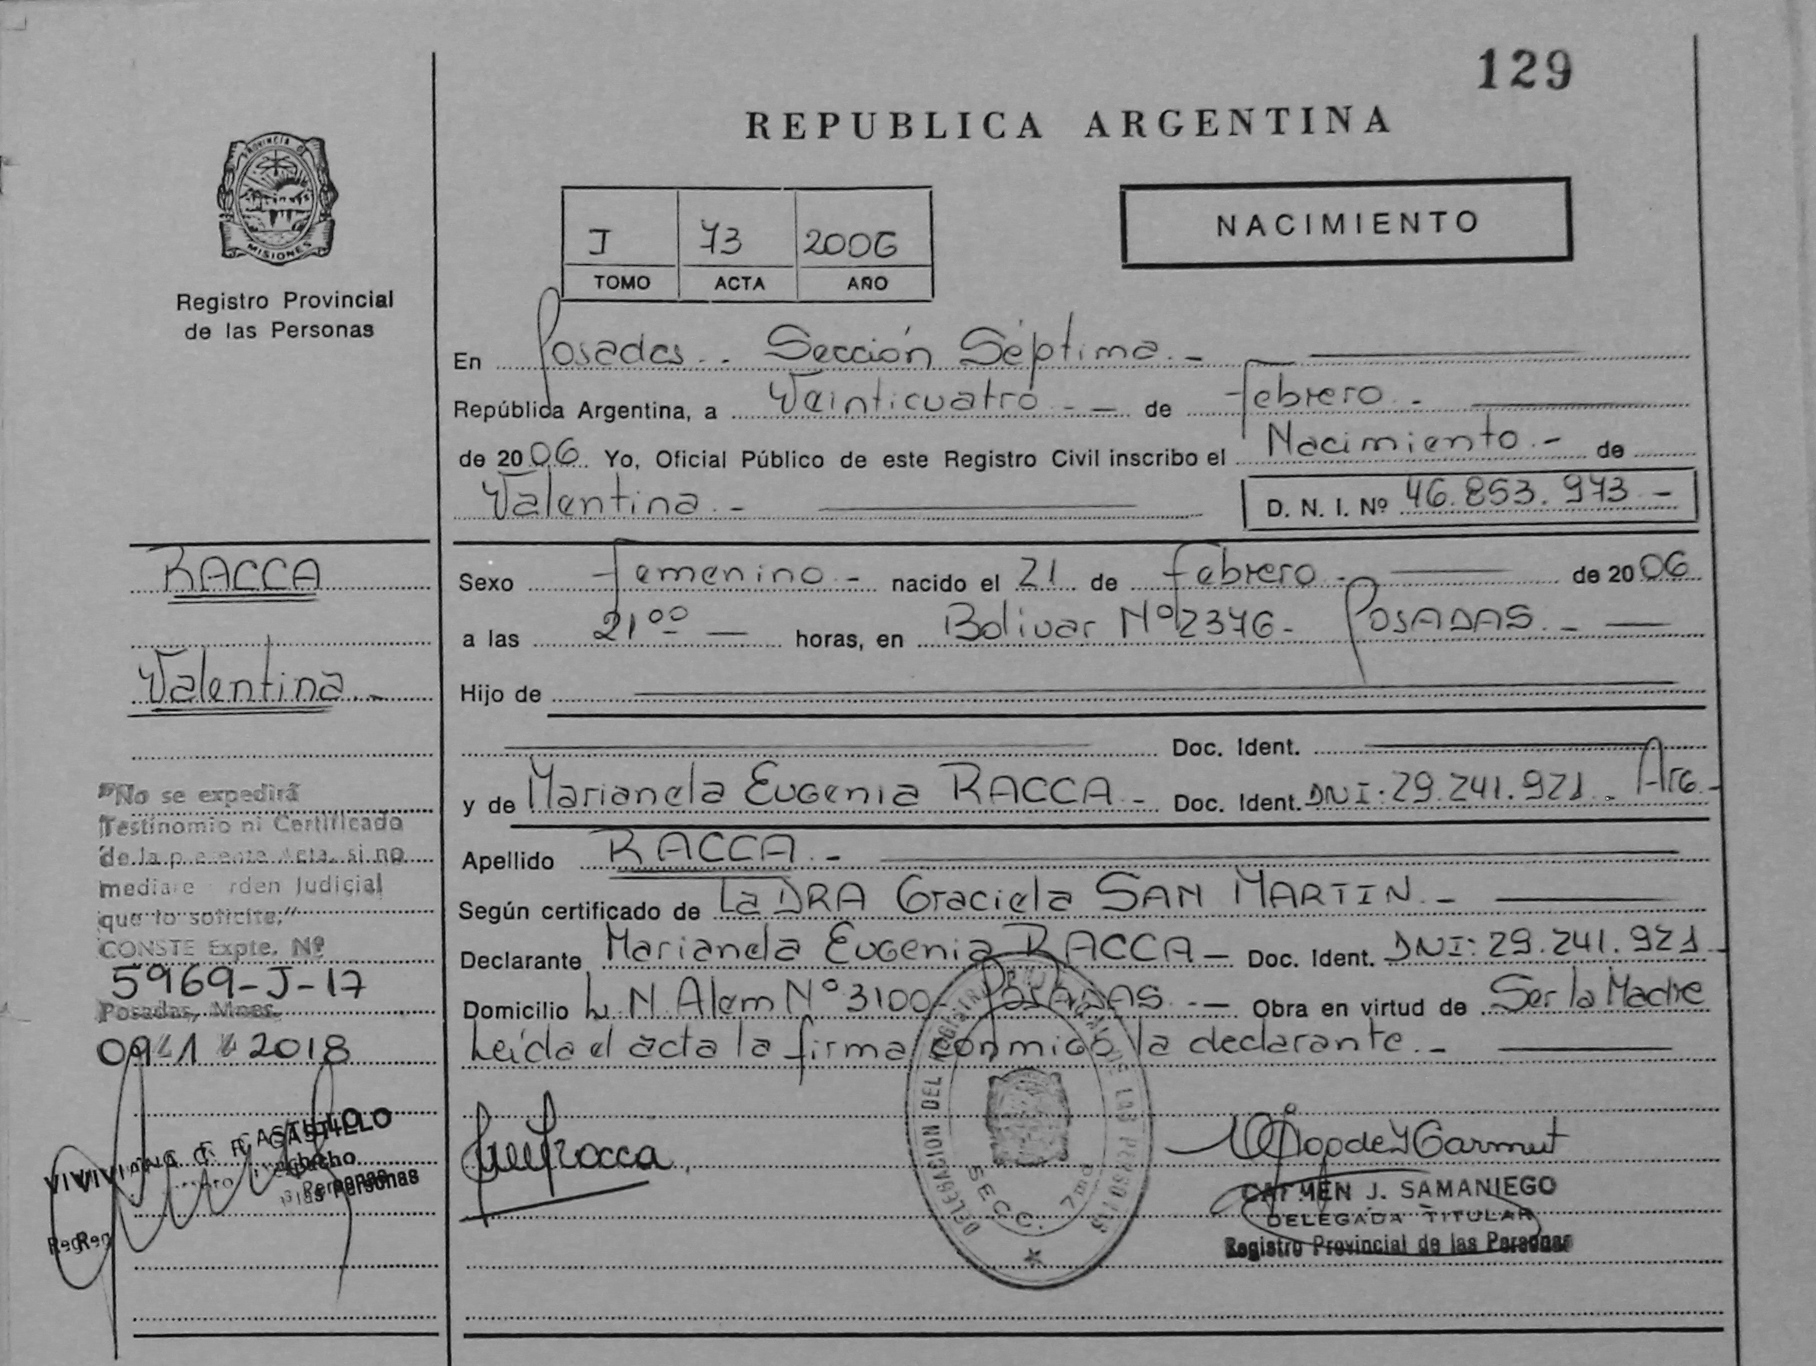 129
REPUBLICA ARGENTINA
PROVINCIA D
MISIONES
Registro Provincial
de las Personas
NACIMIENTO
J 73 2006
TOMO ACTA AÑO
En Posadas.. Sección Séptima.-
República Argentina, a Veinticuatro - - de Febrero. -
de 2006. Yo, Oficial Público de este Registro Civil inscribo el Nacimiento.- de
Valentina.-
D. N. I. Nº 46.853.973.-
RACCA
Valentina.-
Sexo femenino.- nacido el 21 de febrero.- de 2006
a las 21ºº - horas, en Bolivar Nº2376- POSADAS.-
Hijo de
Doc. Ident.
y de Marianela Eugenia RACCA.- Doc. Ident. DNI:29.241.921. Arg.-
Apellido RACCA.-
Según certificado de La DRA Graciela SAN MARTIN.-
Declarante Marianela Eugenia RACCA- Doc. Ident. DNI:29.241.921
Domicilio L. N. Alem Nº 3100- POSADAS.- Obra en virtud de Ser la Madre
Leída el acta la firma conmigo la declarante.-
"No se expedirá
Testinomio ni Certificado
de la presente Acta, si no
mediare orden Judicial
que lo solicite;"
CONSTE Expte. Nº
5969-J-17
Posadas, Mnes.
09 1 2018
CASTILLO
Despacho
las Personas
DELEGACION DEL REGISTRO PROVINCIAL DE LAS PERSONAS
SECC. 7ma
CARMEN J. SAMANIEGO
DELEGADA TITULAR
Registro Provincial de las Personas